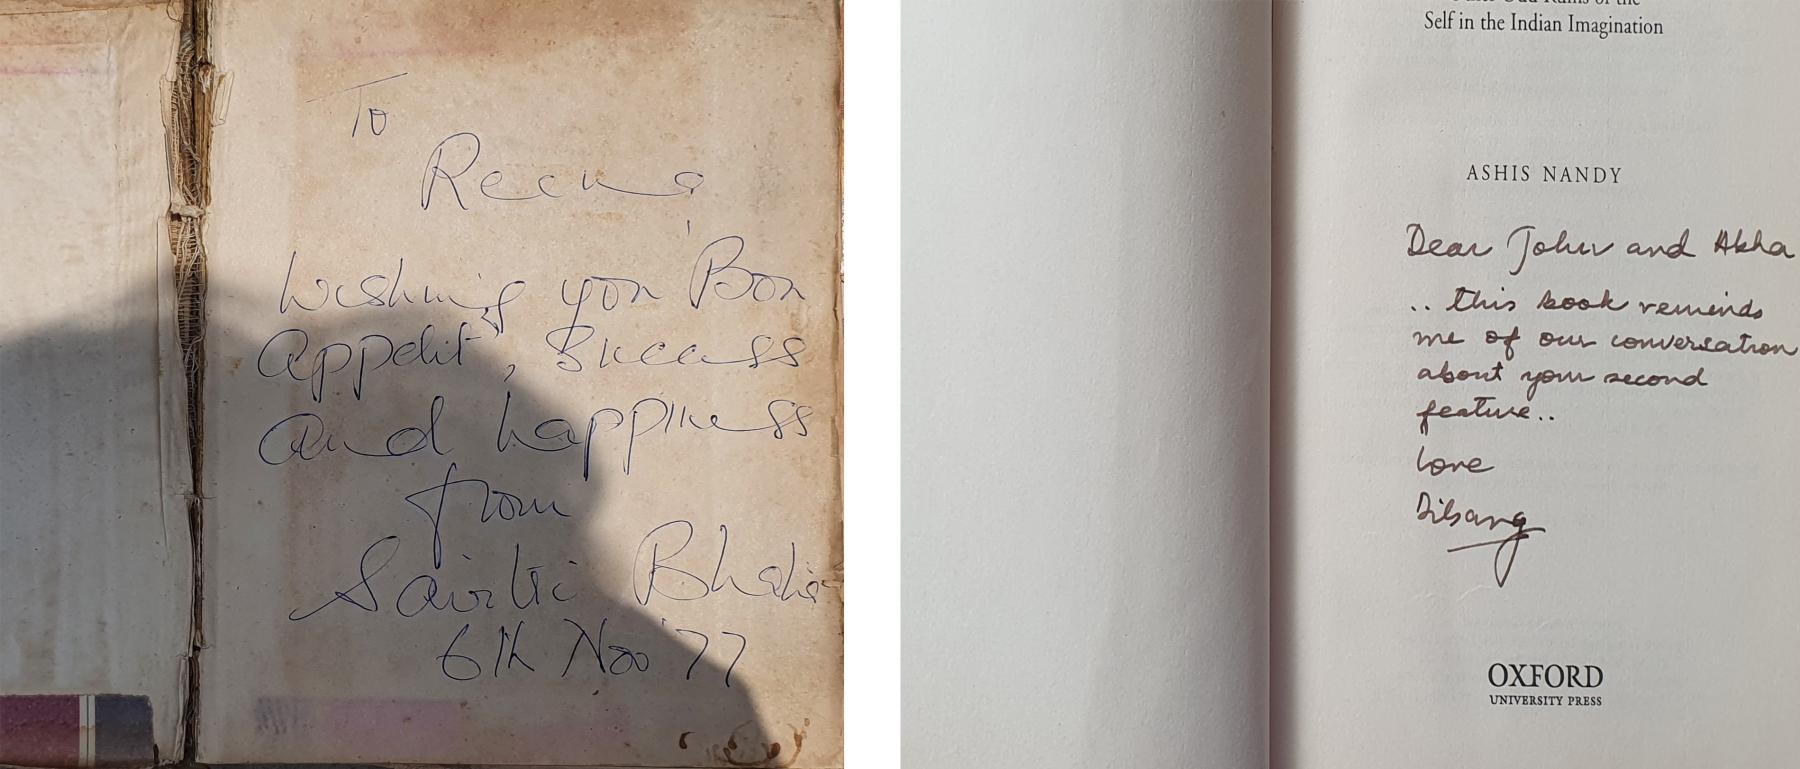 To
Reena
Wishing you Bon
Appetit, Success
and happiness
from
Bhatia
6th Nov '77
Self in the Indian Imagination
ASHIS NANDY
Dear John and Abha
.. this book reminds
me of our conversation
about your second
feature..
love
Dibang
OXFORD
UNIVERSITY PRESS